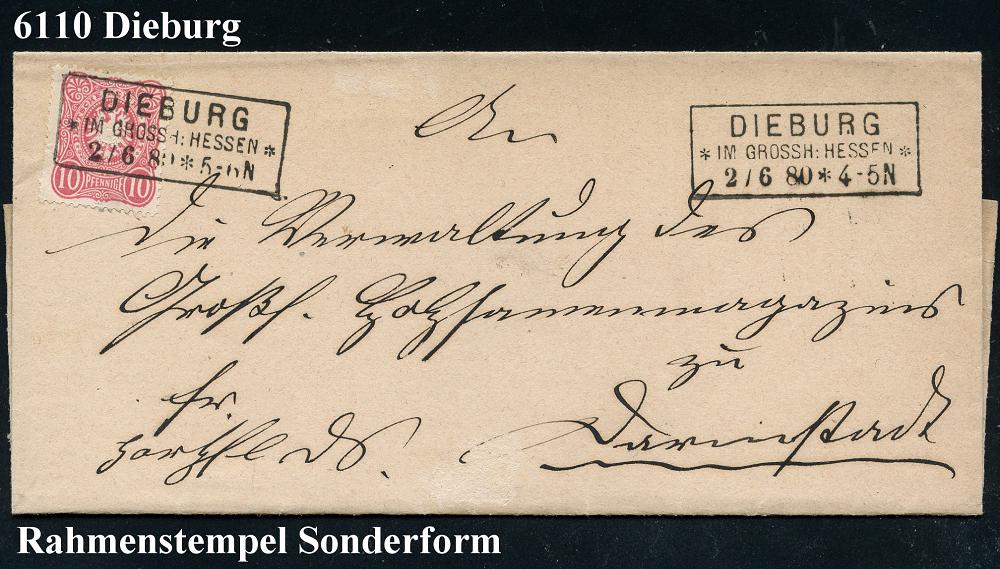 6110 Dieburg
DIEBURG
* IM GROSSH: HESSEN *
2/6 80 * 5-6N
DIEBURG
* IM GROSSH: HESSEN *
2/6 80 * 4-5N
10 PFENNIGE 10
An
die Verwaltung des
Großh. Holzsamenmagazins
zu
Darmstadt
fr.
DS.
Rahmenstempel Sonderform